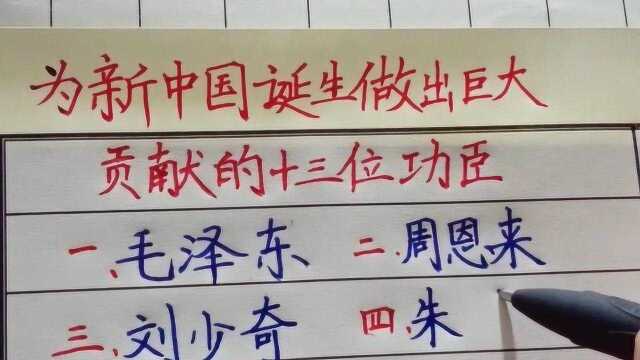 为新中国诞生做出巨大
贡献的十三位功臣
一、毛泽东 二、周恩来
三、刘少奇 四、朱